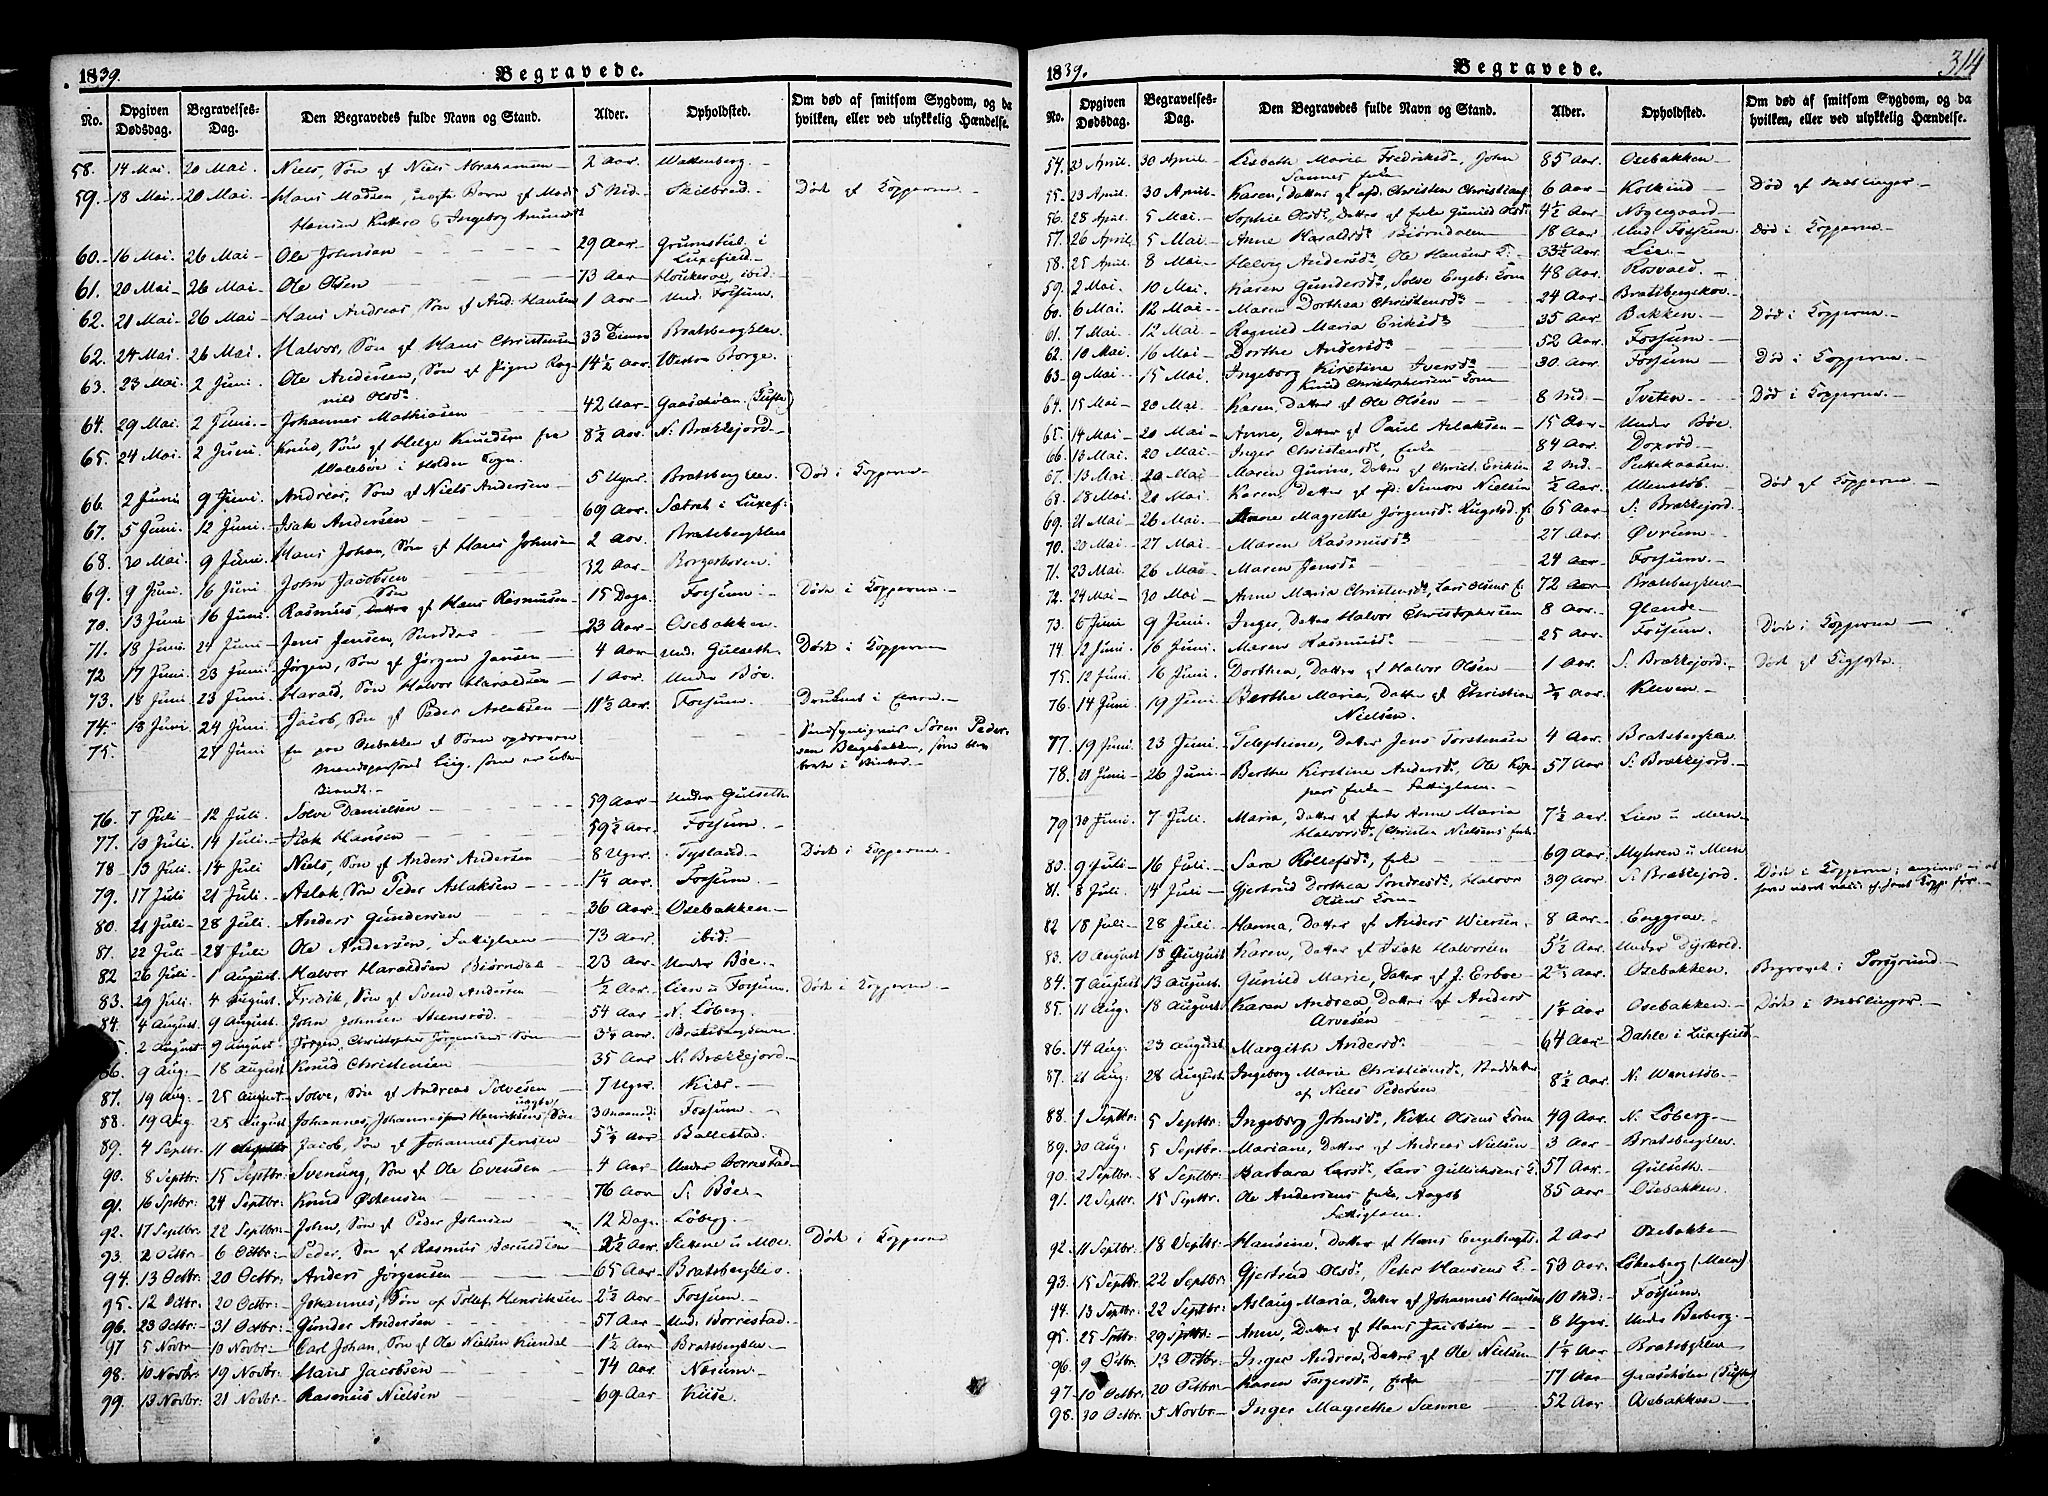 1839.
Begravede.
No. Opgiven Dødsdag. Begravelses-Dag. Den Begravedes fulde Navn og Stand. Alder. Opholdsted. Om død af smitsom Sygdom, og da hvilken, eller ved ulykkelig Hændelse.
58. 14 Mai. 20 Mai. Niels, Søn af Niels Abrahamsen 2 Aar. Wattenberg.
59. 18 Mai. 20 Mai. Hans Madsen, uægte Barn af Mads 5 Md. Skilbred. Døde af Kopperne
Hansen & Ingeborg
60. 16 Mai. 26 Mai Ole Johnsen 29 Aar. Grumstul i
Luxefield
61. 20 Mai 26 Mai Ole Olsen 73 Aar ibid:
62. 21 Mai 26 Mai Hans Andreas, Søn af And: Hansen 1 Aar Und. Fossum.
62. 24 Mai. 26 Mai. Halvor, Søn af Hans Christensen 33 Timer Bratsbergklev
63. 23 Mai. 2 Juni. Ole Andersen, Søn af Pigen Rag- 14½ Aar. Westre Borge.
nild Olsdr
64. 29 Mai. 2 Juni. Johannes Mathiasen 42 Aar
65. 24 Mai. 2 Juni. Knud, Søn af Helge Knudsen fra 8½ Aar. N. Brækkejord
i Holden Sogn.
66. 2 Juni 9 Juni. Andreas, Søn af Niels Andersen 5 Uger. Bratsbergklev. Død i Kopperne
67. 5 Juni. 12 Juni. Isak Andersen 69 Aar. Sætret i Luxef:
68. 30 Mai 9 Juni. Hans Johan, Søn af Hans Johnsen 2 Aar. Bratsbergklev
69. 9 Juni. 16 Juni John Jacobsen 32 Aar. Borgeskoven.
Søn
70. 13 Juni 16 Juni. Rasmus, Datter af Hans Rasmussen 15 Dage. Fossum. Døde i Kopperne.
71. 18 Juni. 24 Juni Jens Jensen, 23 Aar. Osebakken.
72 17 Juni 23 Juni. Jørgen, Søn af Jørgen Jansen 4 Aar Und. Gulseth. Døde i Kopperne
73. 18 Juni 23 Juni. Harald, Søn Halvor Haraldsen 1 Aar. Under Bøe.
74. 18 Juni 24 Juni. Jacob, Søn af Peder Aslaksen 11½ Aar. Fossum. Druknet i Elven
75. 27 Juni En paa Osebakken af Søen opdreven Sandsynligviis Søren Peder-
Mandspersons Liig, som er ube- sen Bergsbakken, som blev
kiendt. borte i Vinter.
76. 7 Juli 12 Juli. Solve Danielsen 59 Aar Under Gulseth
77. 10 Juli. 14 Juli. Isak Hansen 59½ Aar. Fossum.
78 13 Juli. 14 Juli Niels, Søn af Anders Andersen 8 Uger. Tysland. Døde i Kopperne
79. 17 Juli 21 Juli. Aslak, Søn Peder Aslaksen 1¼ Aar. Fossum.
80. 21 Juli 28 Juli. Anders Gundersen 36 Aar. Osebakken
81. 22 Juli 28 Juli Ole Andersen, Fattiglem 73 Aar. ibid:
82 26 Juli 1 August. Halvor Haraldsen Biørndal 23 Aar. Under Bøe.
83. 29 Juli. 4 August. Fredrik, Søn af Svend Andersen ½ Aar. Lien u Fossum. Døde i Kopperne
84. 4 August. 9 August. John Johnsen Steensrød 54 Aar N. Løberg.
2 August 9 August. Jørgen, Christopher Jørgensens Søn 3¼ Aar. Bratsbergkleven
86. 9 Aug: 18 August Knud Christensen 35 Aar. N. Brækkejord
87. 19 Aug: 25 August Solve, Søn af Andreas Solvesen 7 Uger. Kiær.
88. 19 Aug. 25 August Johannes, Johannes Henriksens uægte Søn 3 maaned: Fossum.
89. 4 Septbr. 11 Septbr. Jacob, Søn af Johannes Jensen 5¾ Aar Ballestad.
90. 8 Septbr: 15 Septbr: Svenung, Søn af Ole Evensen 4 Aar Under Borrestad
91. 16 Sptbr: 24 Septbr: Knud Østensen 76 Aar S. Bøe.
92. 17 Septbr: 22 Septbr: John, Søn af Peder Johnsen 12 Dage. Løberg.
93. 2 Octbr: 6 Octbr: Peder, Søn af Rasmus 2½ Aar. u Moe. Døde i Kopperne
94. 13 Octbr: 20 Octbr: Anders Jørgensen 65 Aar. Bratsbergklev.
95. 12 Octbr: 20 Octbr: Johannes, Søn af Tollef Henriksen 2½ Aar Fossum.
96. 23 Octbr: 31 Octbr: Gunder Andersen 57 Aar. Und: Borrestad.
97 5 Novbr 10 Novbr: Carl Johan, Søn af Ole Nielsen 1½ Aar Bratsbergklev.
98. 10 Novbr: 19 Novbr: Hans Jacobsen 74 Aar. Nærum.
99. 13 Novbr: 21 Novbr: Rasmus Nielsen 69 Aar Kiise.
1839.
Begravede.
314
No. Opgiven Dødsdag. Begravelses-Dag. Den Begravedes fulde Navn og Stand. Alder. Opholdsted. Om død af smitsom Sygdom, og da hvilken, eller ved ulykkelig Hændelse.
54. 23 April. 30 April. Lisbeth Maria Fredriksdr, John 85 Aar. Osebakken
Sannes Enke
55. 23 April. 30 April. Karen, Datter af afd. Christen Christians 6 Aar Død af Meslinger.
56. 28 April. 5 Mai. Sophie Olsdr, Datter af Enke Gunild Olsdr 4½ Aar
57. 26 April. 5 Mai. Anne Haraldsdr Biørndalen 18 Aar Und. Fossum. Død i Kopperne
58. 25 April. 8 Mai. Helvig Andersdr, Ole Hansens K. 33½ Aar. Lie.
59. 2 Mai. 10 Mai. Karen Gundersdr, Solve Engeb: Kone 48 Aar. Rosvald.
60. 6 Mai. 12 Mai. Maren Dorthea Christensdr 24 Aar. Bratsbergklev.
61. 7 Mai. 12 Mai. Ragnild Maria Eriksdr 35 Aar. Bakken. Død i Kopperne.
62. 10 Mai. 16 Mai. Dorthe Andersdr 52 Aar. Fossum
63. 9 Mai. 15 Mai. Ingeborg Kirstine Iversdr 30 Aar. Fossum. Død i Kopperne.
Knud Christophersens Kone
64. 15 Mai 20 Mai. Karen, Datter af Ole Olsen 8 Md. Tveten Død i Kopperne.
65. 14 Mai 20 Mai. Anne, Datter af Paul Aslaksen 15 Aar Under Bøe
66. 13 Mai. 20 Mai. Inger Christensdr, Enke 84 Aar.
67. 13 Mai. 20 Mai Maren Gurine, Datter af Christ. Eriksen 2 Md.
68. 18 Mai. 20 Mai. Karen, Datter af afd: Simon Nielsen ½ Aar Død af Kopperne
69. 21 Mai 26 Mai. Anne Magrethe Jørgensdr 65 Aar S. Brækkejord.
70. 20 Mai 27 Mai. Maren Rasmusdr 27 Aar. Øvrum.
71. 23 Mai. 26 Mai Maren Jensdr 24 Aar. Fossum.
72. 24 Mai 30 Mai. Anne Maria Christensdr, Lars Olsens E. 72 Aar Bratsbergklev
73. 6 Juni 9 Juni. Inger, Datter Halvor Christophersen 8 Aar. Glende.
74 12 Juni. 16 Juni. Maren Rasmusdr 25 Aar. Fossum. Døde i Kopperne
75. 12 Juni. 16 Juni. Dorthea, Datter af Halvor Olsen 1 Aar. S. Brækkejord. Døde af
76. 14 Juni. 19 Juni. Berthe Maria, Datter af Christian ¾ Aar. Kleven
Nielsen.
77. 19 Juni. 23 Juni. Telephine, Datter Jens Torstensen 4 Aar. Bratsbergklev.
78. 21 Juni 26 Juni. Berthe Kirstine Andersdr, Ole 57 Aar. S. Brækkejord.
Enke Fattiglem.
79 30 Juni. 7 Juli. Maria, Datter af Enke Anne Maria 7½ Aar. Lien u
Halvorsdr (Christen Nielsens Enke
80. 9 Juli 16 Juli. Sara Rollefsdr, Enke 69 Aar. Myhren u
81. 8 Juli. 14 Juli Gjertrud Dorthea Sondresdr, Halvor 39 Aar. S. Brækkejord. Død i Kopperne; angives at
Olsens Kone have været
82 18 Juli. 28 Juli. Hanna, Datter af Anders Wiersen. 8 Aar. Enggrav.
83. 10 August 18 August Karen, Datter af Isak Halvorsen 5½ Aar. Under Dyrkold.
84. 7 August 13 August. Gunild Marie, Datter af J. Erboe Aar Osebakken. Begravet i Porsgrund
85. 11 Aug. 18 August. Karen Andrea, Datter af Anders 1¼ Aar Osebakken. Døde i Meslinger
Arvesen
86. 14 Aug. 23 August Margith Andersdr 64 Aar Dahle i Luxefield
87. 21 Aug. 28 August. Ingeborg Marie Christiansdr, Steddatter 8½ Aar. N. Wanstøb.
af Niels Pedersen
88. 1 Septbr: 5 Septbr: Ingeborg Johnsdr, Kittel Olsens Kone 49 Aar. N. Løberg
89. 30 Aug. 5 Septbr. Mariane, Datter af Andreas Nielsen 3 Aar. Bratsbergklev.
90. 2 Septbr: 8 Septbr: Barbara Larsdr, Lars Gullichsens E. 57 Aar. Gulseth.
91. 12 Septbr. 15 Septbr. Ole Andersens Enke, Aagot 85 Aar. Osebakken.
Fattiglem.
92. 11 Septbr: 18 Septbr: Hansine, Datter af Hans 2 Aar Osebakke
93. 15 Septbr: 22 Septbr: Gjertrud Olsdr, Peter Hansens E. 53 Aar.
94. 13 Septbr: 22 Septbr: Aslaug Maria, Datter af Johannes Hansen 10 Md: Fossum.
95. 25 Sptbr. 29 Sptbr: Anne, Datter af Hans Jacobsen 8 Uger. Under
96. 9 Octbr: 13 Octbr: Inger Andrea, Datter af Ole Nielsen 1¼ Aar. Bratsbgklev
97. 10 Octbr: 20 Octbr: Karen Torgersdr, Enke 77 Aar
98. 30 Octbr: 5 Novbr Inger Magrethe Sanne 52 Aar. Osebakken